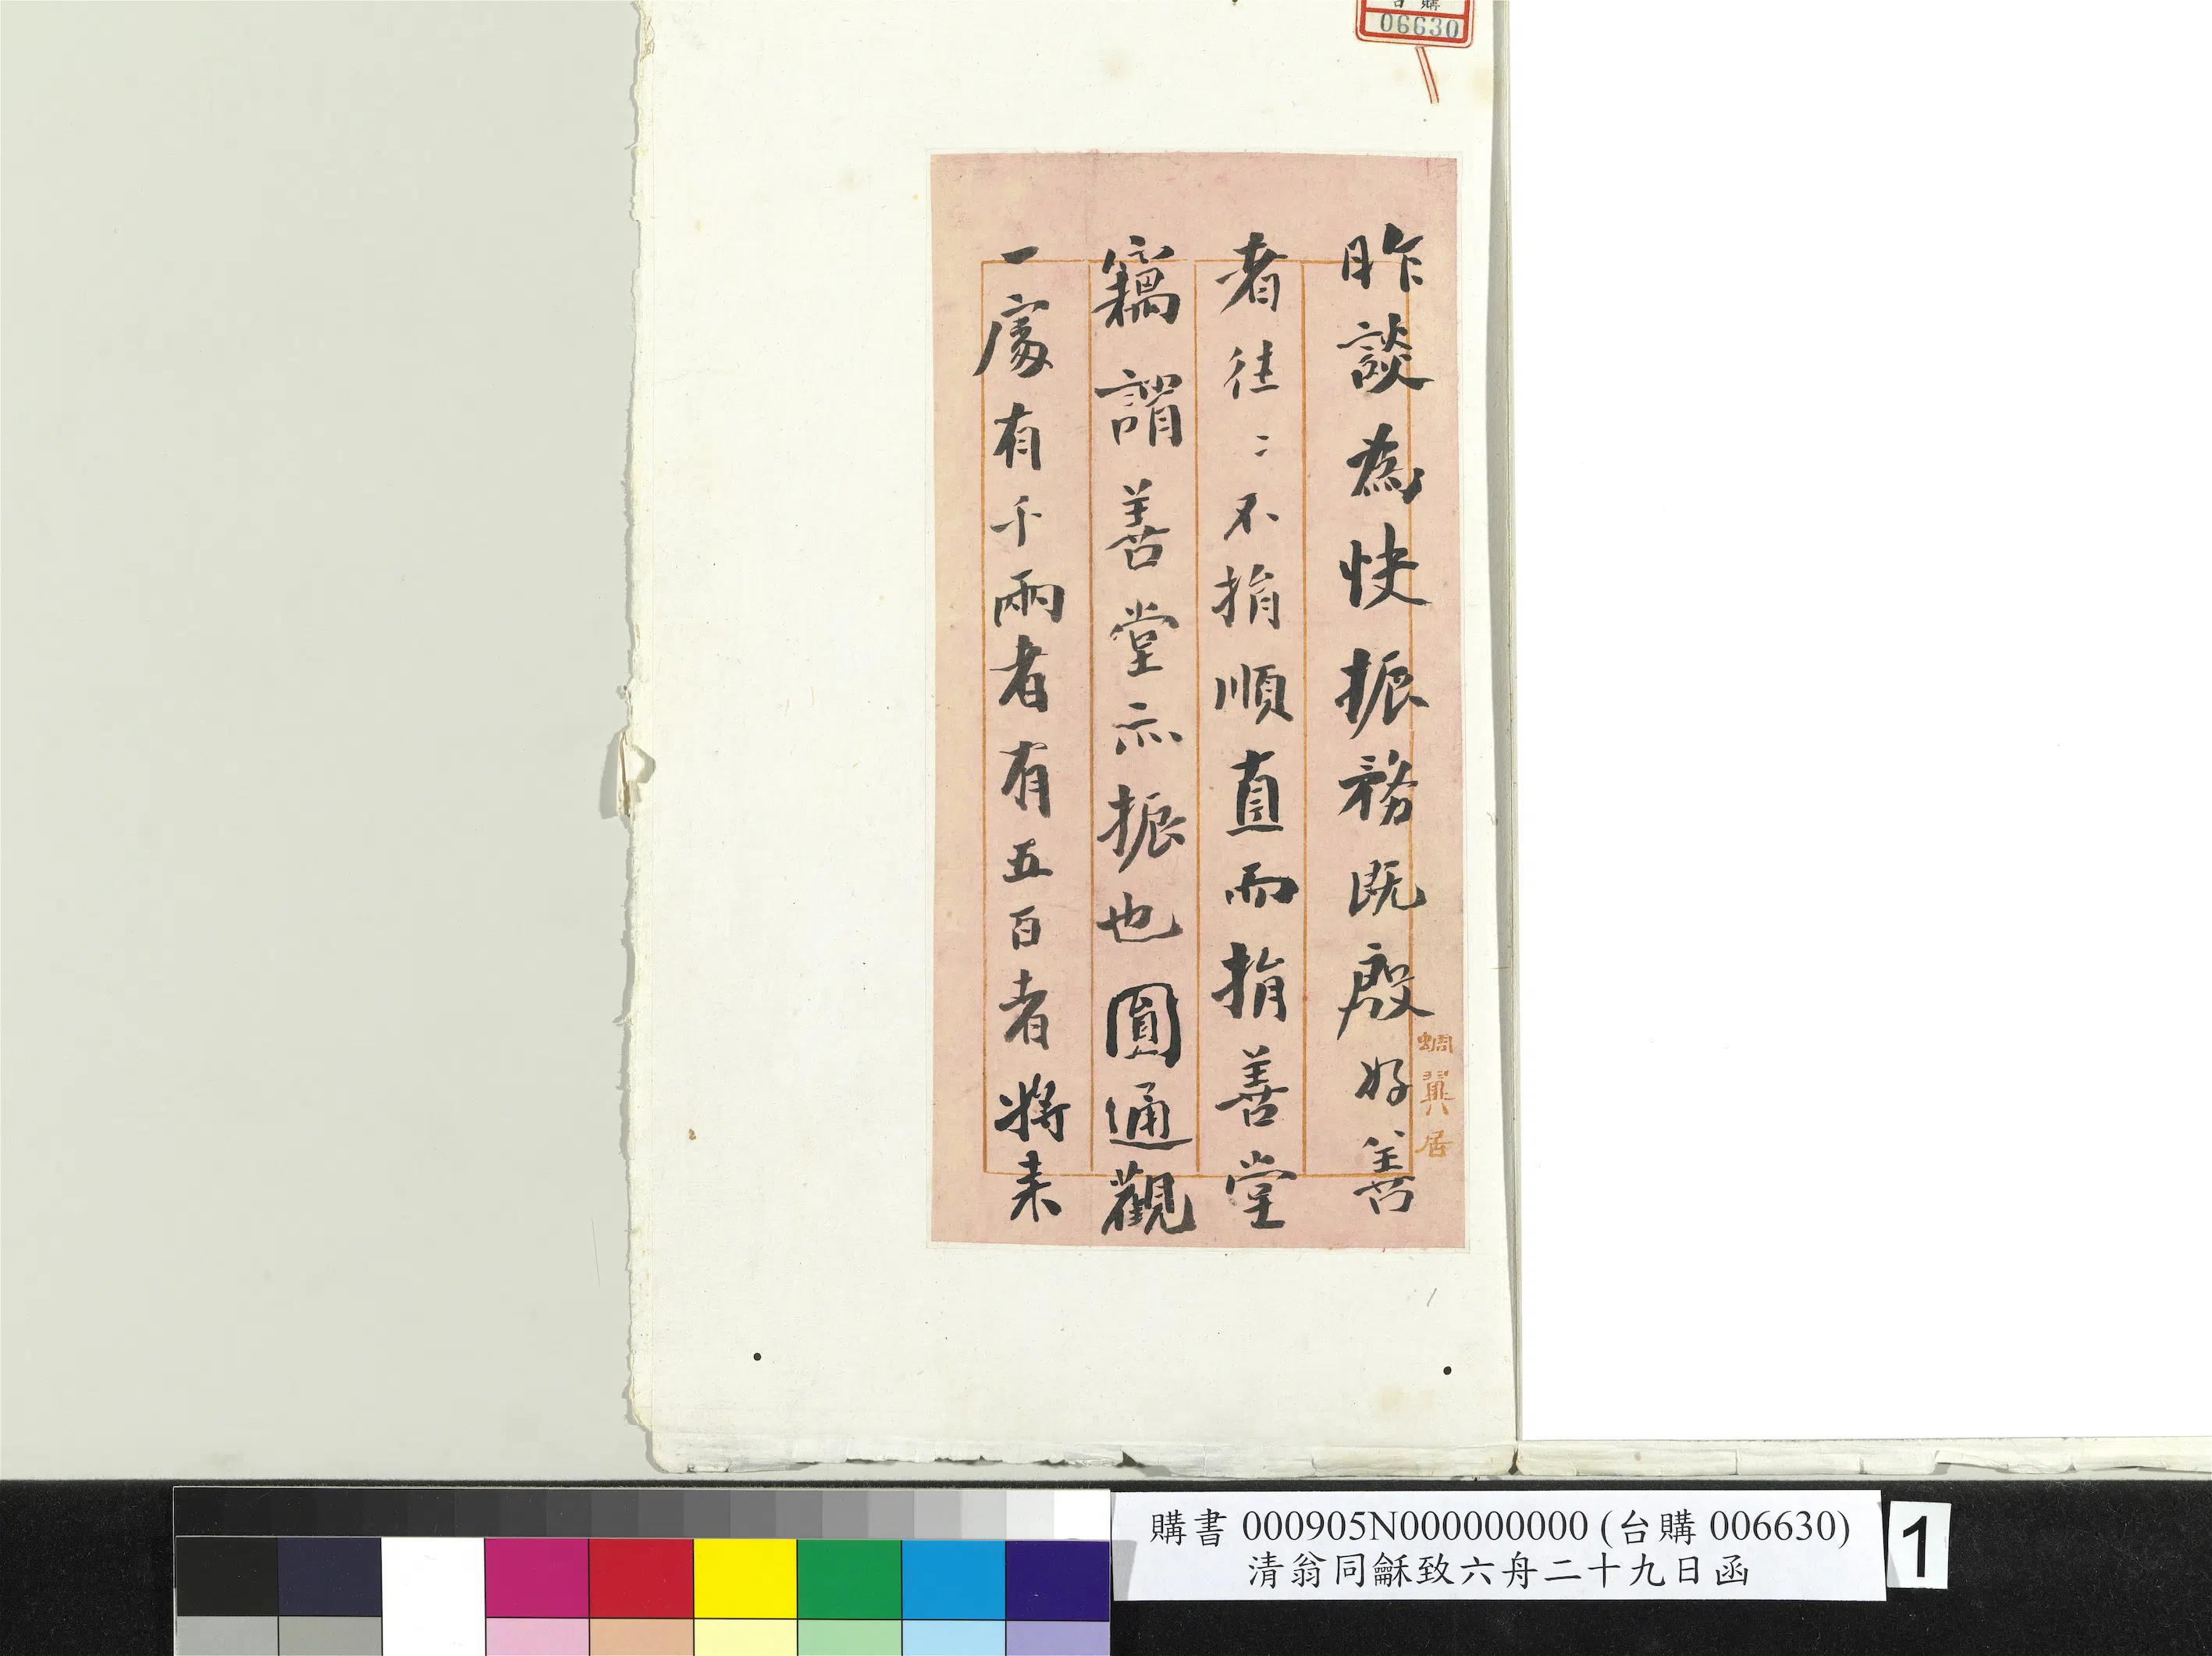 購
06630
昨談為快振務既殷好善
者往〻不捐順直而捐善堂
竊謂善堂亦振也圓通觀
一處有千兩者有五百者將来
蜩翼居
購書 000905N000000000 (台購 006630)
清翁同龢致六舟二十九日函
1